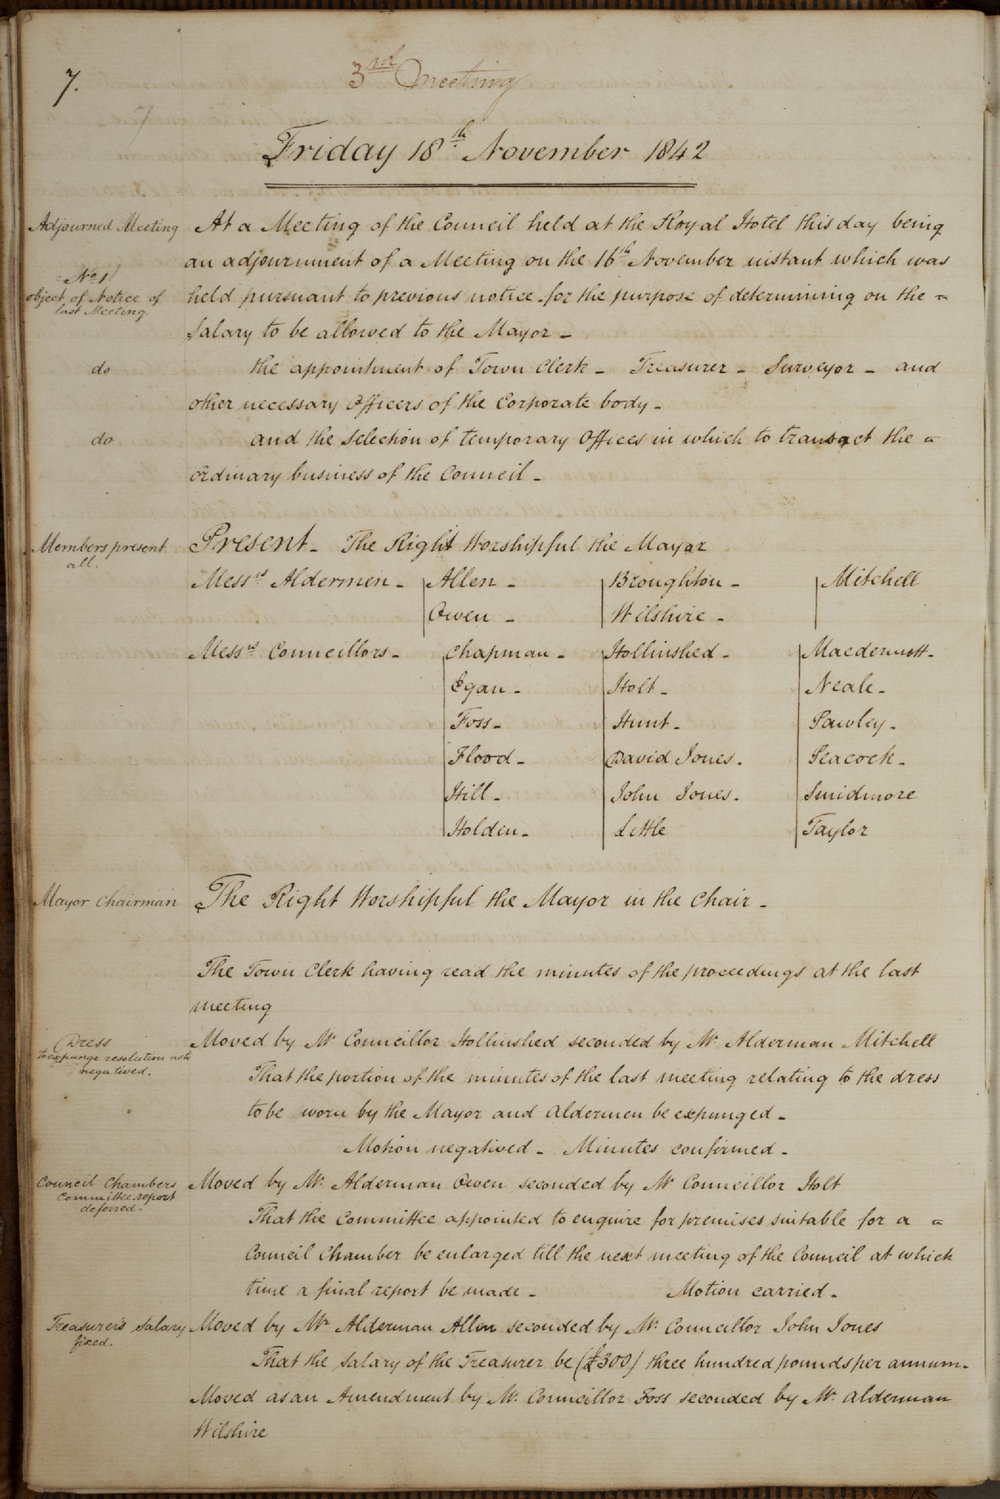 7.
3rd Meeting
Friday 18th November 1842
Adjourned Meeting
At a Meeting of the Council held at the Royal Hotel this day being
an adjournment of a Meeting on the 16th November instant which was
No 1/
object of Notice of
last Meeting.
held pursuant to previous notice for the purpose of determining on the -
Salary to be allowed to the Mayor -
do
the appointment of Town Clerk - Treasurer - Surveyor - and
other necessary Officers of the Corporate body -
do
and the selection of temporary Offices in which to transact the -
ordinary business of the Council -
Members present
all.
Present - The Right Worshipful the Mayor
Messrs Aldermen - Allen - Broughton - Mitchell
Owen - Wilshire -
Messrs Councillors - Chapman - Hollinshed - Macdermott -
Egan - Holt - Neale -
Foss - Hunt - Pawley -
Flood - David Jones - Peacock -
Hill - John Jones - Smidmore
Holden - Little Taylor
Mayor Chairman
The Right Worshipful the Mayor in the Chair -
The Town Clerk having read the minutes of the proceedings at the last
meeting
Dress
to expunge resolution as to
negatived.
Moved by Mr Councillor Hollinshed seconded by Mr Alderman Mitchell
That the portion of the minutes of the last meeting relating to the dress
to be worn by the Mayor and Aldermen be expunged -
Motion negatived - Minutes confirmed -
Council Chambers
Committee report
deferred.
Moved by Mr Alderman Owen seconded by Mr Councillor Holt
That the Committee appointed to enquire for premises suitable for a -
Council Chamber be enlarged till the next meeting of the Council at which
time a final report be made - Motion carried -
Treasurers Salary
fixed.
Moved by Mr Alderman Allen seconded by Mr Councillor John Jones
That the Salary of the Treasurer be (£300) three hundred pounds per annum -
Moved as an Amendment by Mr Councillor Foss seconded by Mr Alderman
Wilshire